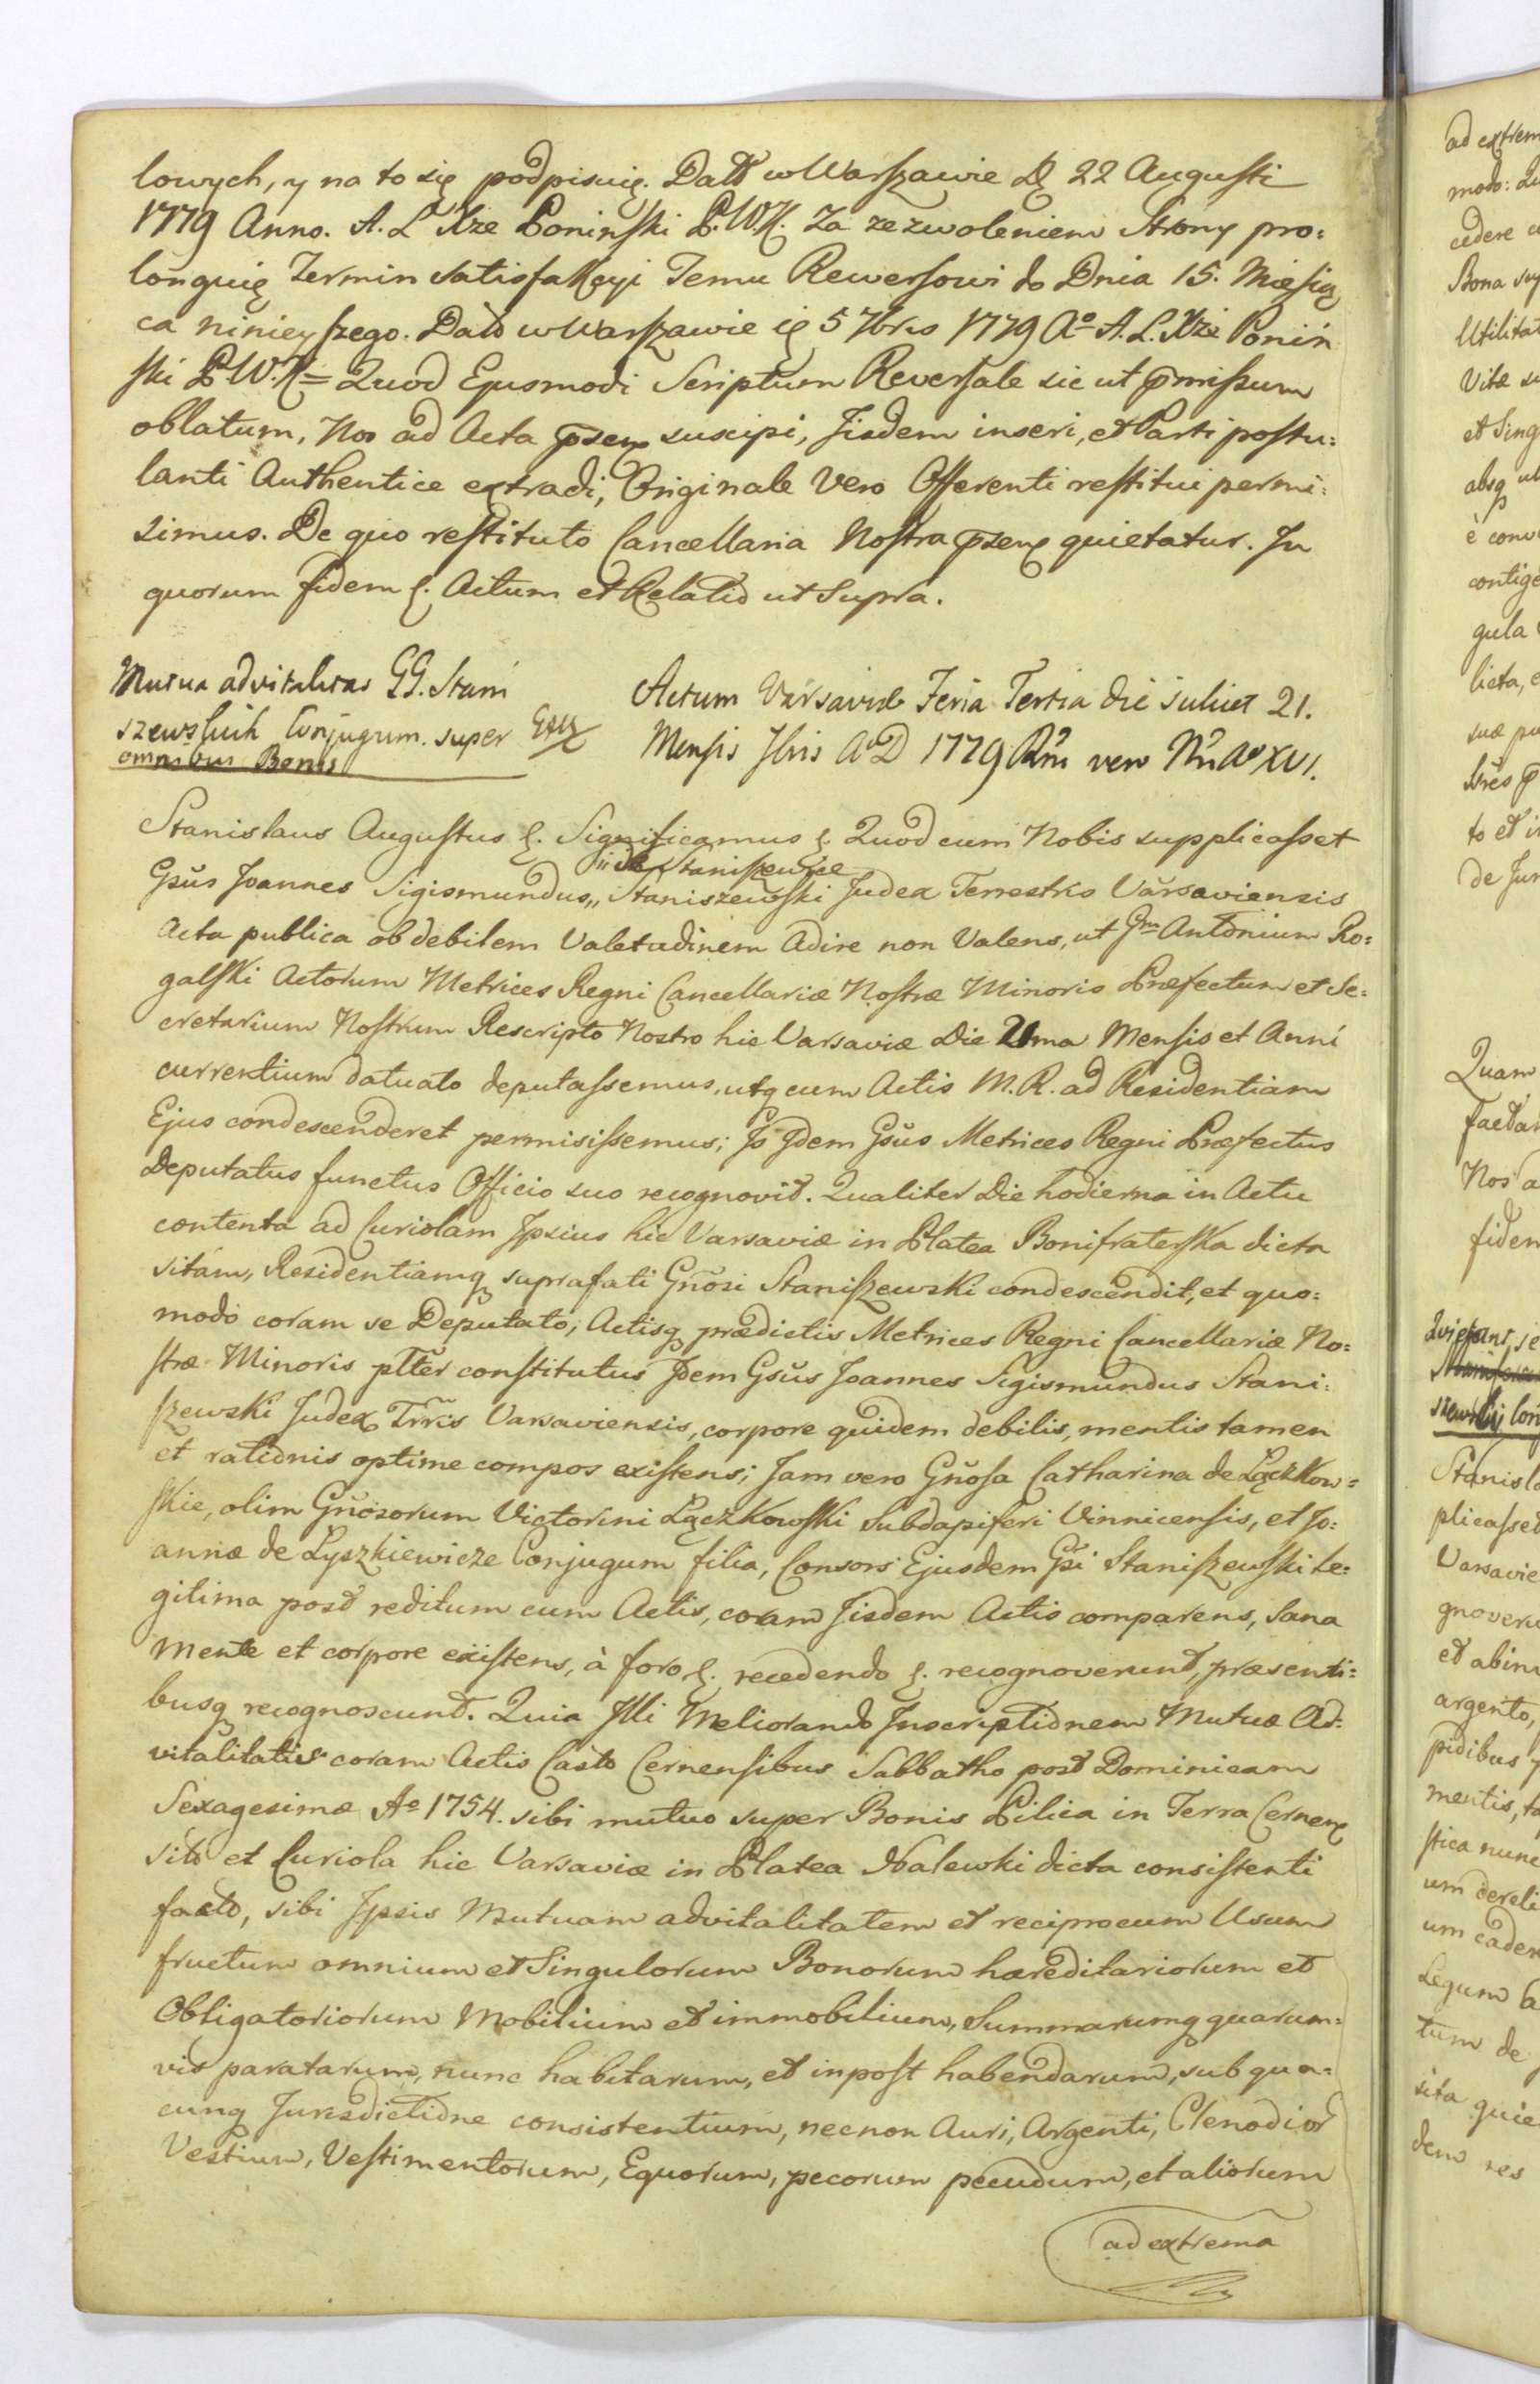 lowych, y na to się podpisuię. Datt w Warszawie D. 22 Augusti
1779 Anno. A. L. Xże Poninski P.W.K. Za zezwoleniem Strony pro:
longuię Termin satisfakcyi Temu Rewersowi do Dnia 15. Miesią
ca ninieyszego. Dato w Warszawie 5 7bris 1779 Aº A. L. Xże Poniń
ski P.W.K = Quod Ejusmodi Scriptum Reversale sic ut pmissum
oblatum, Nos ad Acta psen suscipi, Iisdem inseri, et Parti postu:
lanti Authentice extradi, Originale Vero Offerenti restitui permi:
simus. De quo restituto Cancellaria Nostra psen quietatur. In
quorum fidem &. Actum et Relatio ut Supra.
Mutua advitalitas GG. Stani
szewskich Conjugum. super
omnibus Bonis
Actum Varsaviæ Feria Tertia die scilicet 21.
Mensis 7bris A D 1779 Rni vero Nri Aº XVI.
Stanislaus Augustus &. Significamus & Quod cum Nobis supplicasset
de Staniszewice
Gsus Joannes Sigismundus,, Staniszewski Judex Terrestris Varsaviensis
Acta publica ob debilem Valetudinem Adire non Valens, ut Gm Antonium Ro:
galski Actorum Metrices Regni Cancellariæ Nostræ Minoris Præfectum et Se:
cretarium Nostrum Rescripto Nostro hic Varsaviæ Die 21ma Mensis et Anni
currentium datuato deputassemus, utq cum Actis M. R. ad Residentiam
Ejus condescenderet permisissemus; Is Idem Gsus Metrices Regni Præfectus
Deputatus functus Officio suo recognovit. Qualiter Die hodierna in Actu
contenta ad Curiolam Ipsius hic Varsaviæ in Platea Bonifraterska dicta
sitam, Residentiamq suprafati Gnosi Staniszewski condescendit, et quo:
modo coram se Deputato, Actisq prædictis Metrices Regni Cancellariæ No:
stræ Minoris pltter constitutus Idem Gsus Joannes Sigismundus Stani:
szewski Judex Trris Varsaviensis, corpore quidem debilis, mentis tamen
et rationis optime compos existens; Jam vero Gnosa Catharina de Łączkow=
skie, olim Gnosorum Victorini Łączkowski Subdapiferi Vinnicensis, et Jo:
annæ de Lyszkiewicze Conjugum filia, Consors Ejusdem Gsi Staniszewski le:
gitima post reditum cum Actis, coram Iisdem Actis comparens, sana
mente et corpore existens, à foro &. recedendo &. recognoverunt, præsenti=
busq recognoscunt. Quia Illi Meliorando Inscriptionem Mutuæ Ad:
vitalitatis coram Actis Castr Cernensibus Sabbatho post Dominicam
Sexagesimæ Aº 1754. sibi mutuo super Bonis Pilica in Terra Cernen
sitis et Curiola hic Varsaviæ in Platea Nalewki dicta consistenti
facto, sibi Ipsis Mutuam advitalitatem et reciprocum Usum
fructum omnium et Singulorum Bonorum hæreditariorum et
Obligatoriorum Mobilium et immobilium, Summarumq quarum=
vis paratarum, nunc habitarum, et inpost habendarum, sub qua=
cunq Jurisdictione consistentium, necnon Auri, Argenti, Clenodior
Vestium, Vestimentorum, Equorum, pecorum pecudum, et aliorum
ad extrema